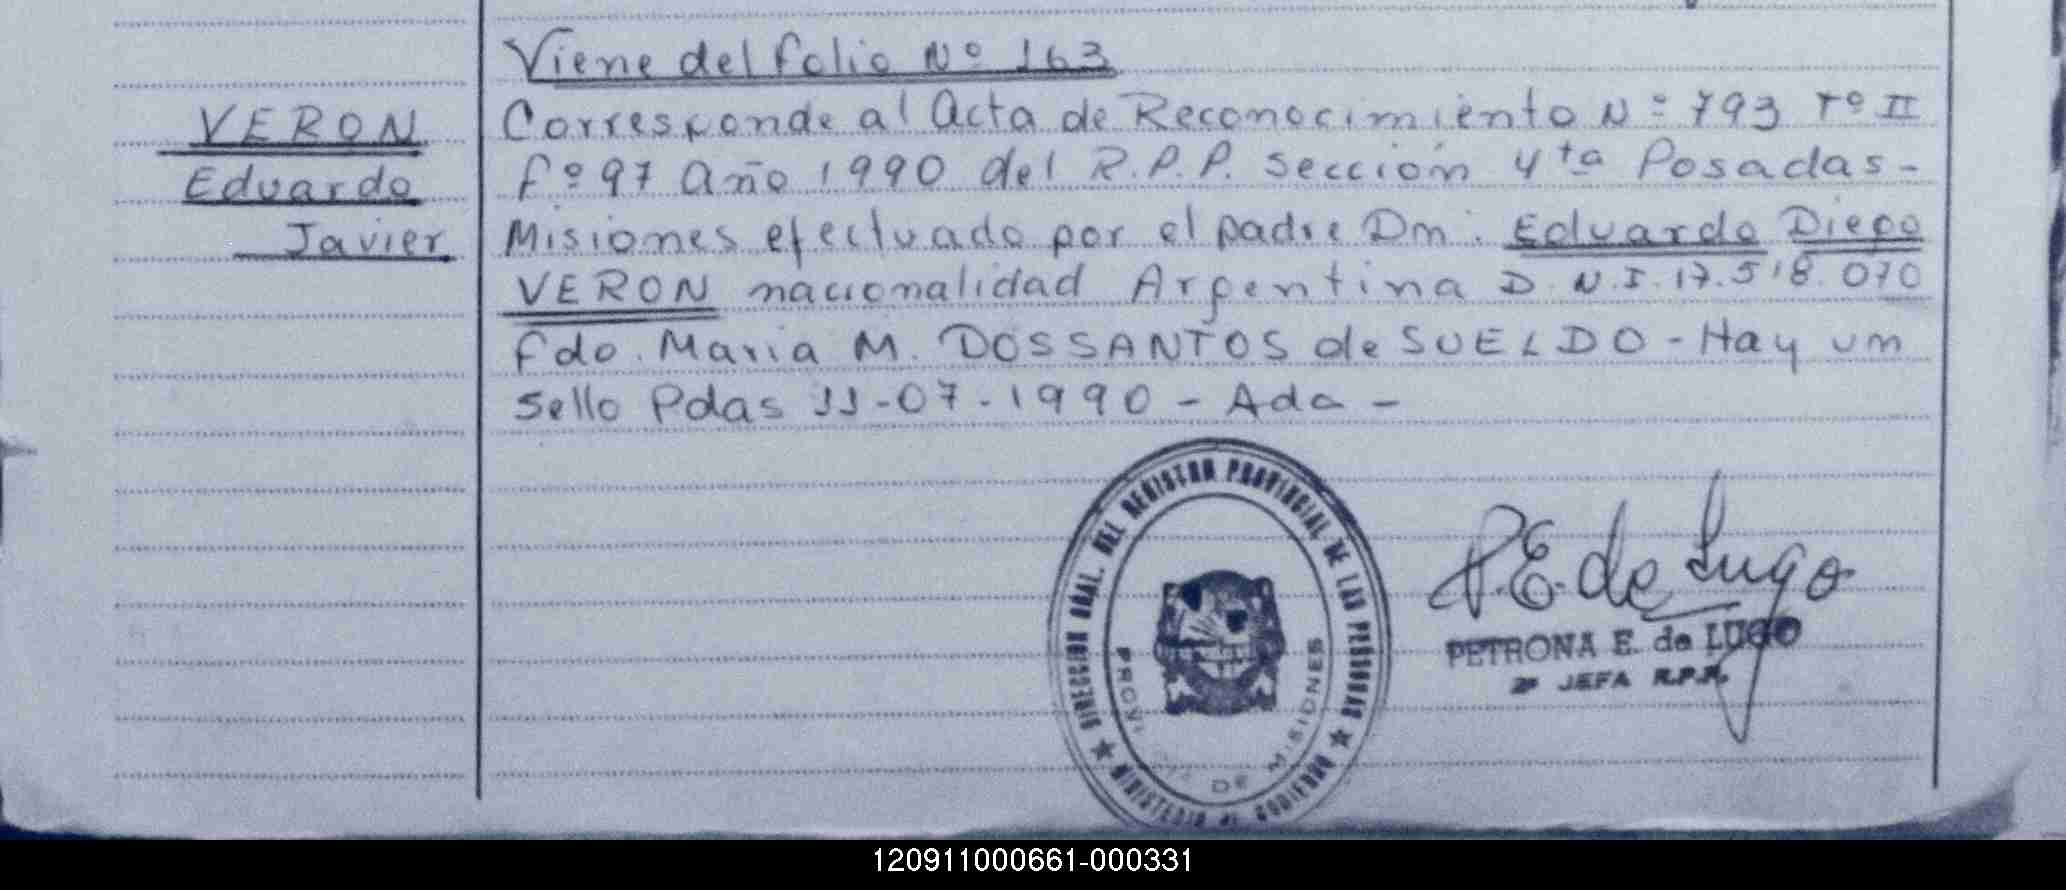 Viene del folio Nº 163
VERON
Eduardo
Javier
Corresponde al Acta de Reconocimiento Nº 793 Tº II
fº 97 Año 1990 del R.P.P. Sección 4ta Posadas-
Misiones efectuado por el padre Dn. Eduardo Diego
VERON nacionalidad Argentina D.N.I. 17.518.070
fdo. Maria M. DOSSANTOS de SUELDO - Hay un
sello Pdas 11-07-1990 - Ada -
DIRECCION GRAL. DEL REGISTRO PROVINCIAL DE LAS PERSONAS
MINISTERIO DE GOBIERNO
DE MISIONES
P.E. de Lugo
PETRONA E. de LUGO
JEFA R.P.P.
120911000661-000331